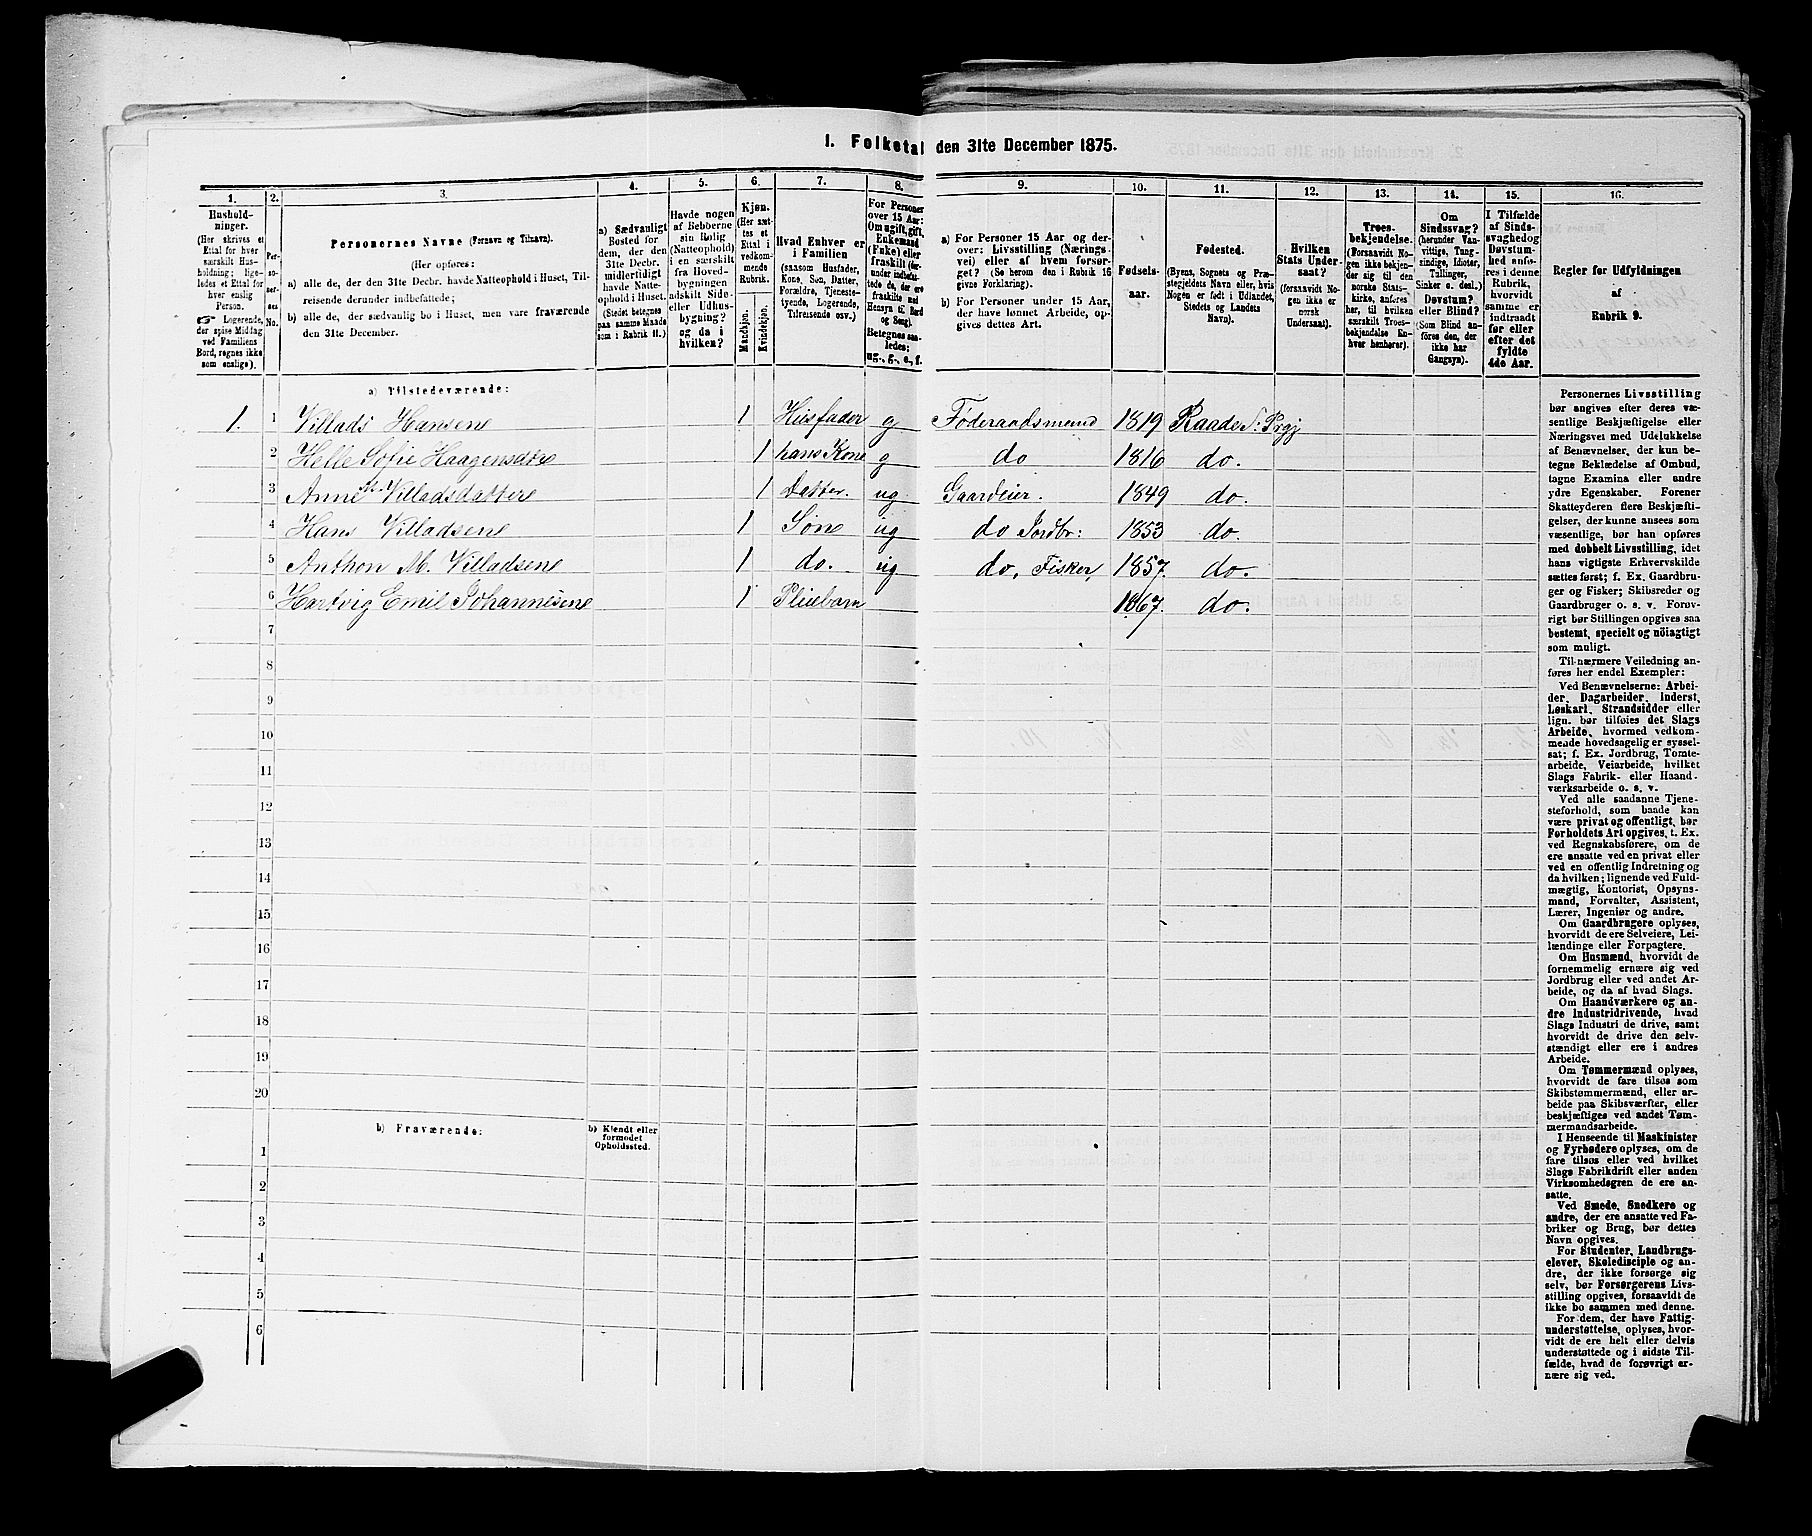 1. Folketal den 31te December 1875.
1. 2. 3. 4. 5. 6. 7. 8. 9. 10. 11. 12. 13. 14. 15. 16.
Hushold-
ninger.
(Her skrives et
Ettal for hver
særskilt Hus-
holdning; lige-
ledes et Ettal for
hver enslig
Person.
☞ Logerende,
der spise Middag
ved Familiens
Bord, regnes ikke
som enslige).
Per-
so-
ner-
nes
No.
Personernes Navne (Fornavn og Tilnavn).
(Her opføres:
a) alle de, der den 31te Decbr. havde Natteophold i Huset, Til-
reisende derunder indbefattede;
b) alle de, der sædvanlig bo i Huset, men vare fraværende
den 31te December.
a) Sædvanligt
Bosted for
dem, der den
31te Decbr.
midlertidigt
havde Natte-
ophold i Huset.
(Stedet betegnes
paa samme Maade
som i Rubrik 11.)
Havde nogen
af Beboerne
sin Bolig
(Natteophold)
i en særskilt
fra Hoved-
bygningen
adskilt Side-
eller Udhus-
bygning?
og da i
hvilken?
Kjøn.
(Her sæt-
tes et
Ettal i
vedkom-
mende
Rubrik.
Mandkjøn.
Kvindekjøn.
Hvad Enhver er
i Familien
(saasom Husfader,
Kone, Søn, Datter,
Forældre, Tjeneste-
tyende, Logerende,
Tilreisende osv.)
For Personer
over 15 Aar:
Om ugift, gift,
Enkemand
(Enke) eller
fraskilt (der-
under indbefat-
tede de, der ere
fraskilte med
Hensyn til Bord
og Seng).
Betegnes saa-
ledes:
ug., g., e., f.
a) For Personer 15 Aar og der-
over: Livsstilling (Nærings-
vei) eller af hvem forsør-
get? (Se herom den i Rubrik 16
givne Forklaring).
b) For Personer under 15 Aar,
der have lønnet Arbeide, op-
gives dettes Art.
Fødsels-
aar.
Fødested.
(Byens, Sognets og Præ-
stegjeldets Navn eller, hvis
Nogen er født i Udlandet,
Stedets og Landets
Navn).
Hvilken
Stats Under-
saat?
(forsaavidt No-
gen ikke er
norsk
Undersaat).
Troes-
bekjendelse.
(Forsaavidt No-
gen ikke bekjen-
der sig til den
norske Stats-
kirke, anføres
her, til hvilken
særskilt Troes-
bekjendelse En-
hver henhører).
Om
Sindssvag?
(herunder Van-
vittige, Tung-
sindige, Idioter,
Tullinger,
Sinker o. desl.)
Døvstum?
eller Blind?
(Som Blind an-
føres den, der
ikke har
Gangsyn).
I Tilfælde
af Sinds-
svaghed og
Døvstum-
hed anfø-
res i denne
Rubrik,
hvorvidt
samme er
indtraadt
før eller
efter det
fyldte
4de Aar.
Regler for Udfyldningen
af
Rubrik 9.
a) Tilstedeværende:
1. 1 Villads Hansen 1 Husfader g Føderaadsmand 1819 Raade S: Prgj
2 Helle Sofie Haagensdtr 1 hans Kone g do 1816 do.
3 Anne M. Villadsdatter 1 Datter. ug Gaardeier. 1849 do.
4 Hans Villadsen 1 Søn ug do Jordbr: 1853 do.
5 Anthon M. Villadsen 1 do. ug do, Fisker, 1857. do.
6 Hartvig Emil Johannesen 1 Pleiebarn 1867. do.
7
8
9
10
11
12
13
14
15
16
17
18
19
20
b) Fraværende: b) Kjendt eller
formodet
Opholdssted.
1
2
3
4
5
6
Personernes Livsstilling
bør angives efter deres væ-
sentlige Beskjæftigelse eller
Næringsvei med Udelukkelse
af Benævnelser, der kun be-
tegne Beklædelse af Ombud,
tagne Examina eller andre
ydre Egenskaber. Forener
Skatteyderen flere Beskjæfti-
gelser, der kunne ansees som
væsentlige, bør han opføres
med dobbelt Livsstilling, idet
hans vigtigste Erhvervskilde
sættes først; f. Ex. Gaardbru-
ger og Fisker; Skibsreder og
Gaardbruger o. s. v. Forøv-
rigt bør Stillingen opgives saa
bestemt, specielt og nöiagtigt
som muligt.
Til nærmere Veiledning an-
føres her endel Exempler:
Ved Benævnelserne: Arbei-
der, Dagarbeider, Inderst,
Løskarl, Strandsidder eller
lign. bør tilføies det Slags
Arbeide, hvormed vedkom-
mende hovedsagelig er syssel-
sat; f. Ex. Jordbrug, Tomte-
arbeide, Veiarbeide, hvilket
Slags Fabrik- eller Haand-
værksarbeide o. s. v.
Ved alle saadanne Tjene-
steforhold, som baade kan
være privat og offentligt, bør
Forholdets Art opgives, t. Ex.
ved Regnskabsførere, om de
ere ansatte ved en privat eller
ved en offentlig Indretning og
da hvilken; lignende ved Fuld-
mægtig, Kontorist, Opsyns-
mand, Forvalter, Assistent,
Lærer, Ingeniør og andre.
Om Gaardbrugere oplyses,
hvorvidt de ere Selveiere, Lei-
lændinge eller Forpagtere.
Om Husmænd, hvorvidt de
fornemmelig ernære sig ved
Jordbrug eller ved andet Ar-
beide, og da af hvad Slags.
Om Haandværkere og an-
dre Industridrivende, hvad
Slags Industri de drive, samt
hvorvidt de drive den selv-
stændigt eller ere i andres
Arbeide.
Om Tømmermænd oplyses,
hvorvidt de fare tilsøs som
Skibstømmermænd, eller ar-
beide paa Skibsværfter, eller
beskjæftiges ved andet Tøm-
mermandsarbeide.
I Henseende til Maskinister
og Fyrbødere oplyses, om de
fare tilsøs eller ved hvilket
Slags Fabrikdrift eller anden
Virksomhedsgren de ere an-
satte.
Ved Smede, Snedkere og
andre, der ere ansatte ved Fa-
briker og Brug, bør dettes
Navn opgives.
For Studenter, Landbrugs-
elever, Skoledisciple og an-
dre, der ikke forsørge sig
selv, bør Forsørgerens Livs-
stilling opgives, forsaavidt de
ikke bo sammen med denne.
For dem, der have Fattig-
understøttelse, oplyses, hvor-
vidt de ere helt eller delvis
understøttede og i sidste Til-
fælde, hvad de forøvrigt er-
nære sig ved.